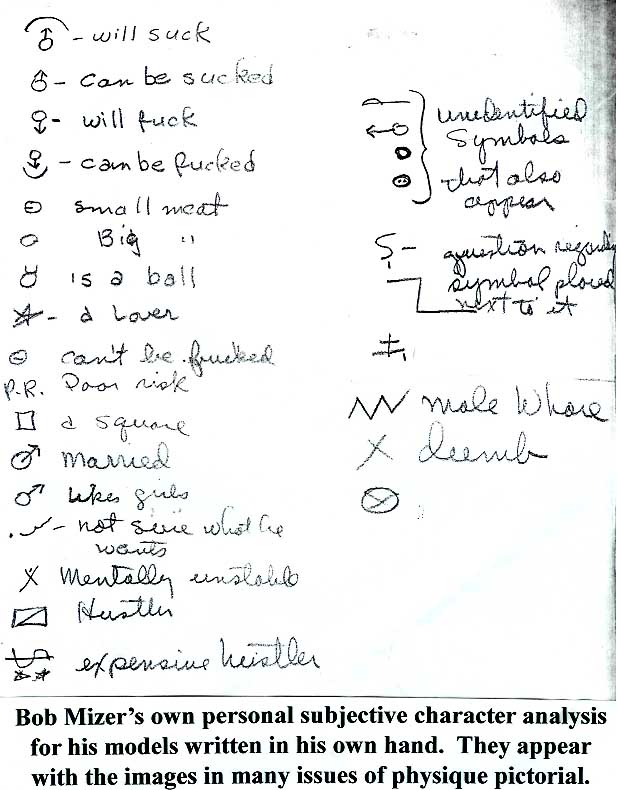 - will suck
- can be sucked
- will fuck
- can be fucked
small meat
Big "
is a ball
- a Lover
can't be frucked
P.R. Poor risk
a square
married
likes girls
- not sure what he
wants
Mentally unstable
Hustler
expensive hustler
unidentified
symbols
that also
appear
? - question regarding
symbol placed
next to it
male Whore
X
Bob Mizer's own personal subjective character analysis
for his models written in his own hand. They appear
with the images in many issues of physique pictorial.